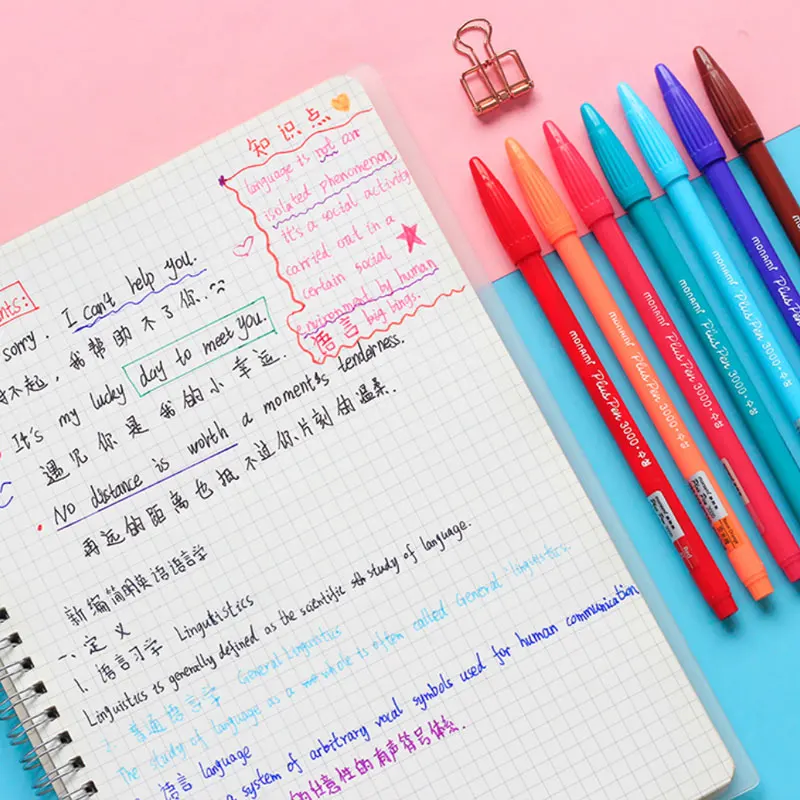 知识点
language is not an
isolated phenomenon,
it's a social activity
carried out in a
certain social
environment by human
big bings.
语言
nts:
sorry. I can't help you.
不起，我帮助不了你..
It's my lucky day to meet you.
遇见你是我的小幸运.
No distance is worth a moment's tenderness.
再远的距离也抵不过你片刻的温柔.
新编简明英语语言学
一、定义
1. 语言学 Lingutistics
Linguistics is generally defined as the scientific study of language.
2. 普通语言学 General Linguistics
The study of language as a whole is often called General linguistics.
语言 language
a system of arbitrary vocal symbols used for human communication
的任意性的有声符号体系.
monami Plus Pen 3000·수성
monami Plus Pen 3000·수성
monami Plus Pen 3000·수성
monami Plus Pen 3000·수성
monami Plus Pen 3000·수성
monami Plus Pen
monami